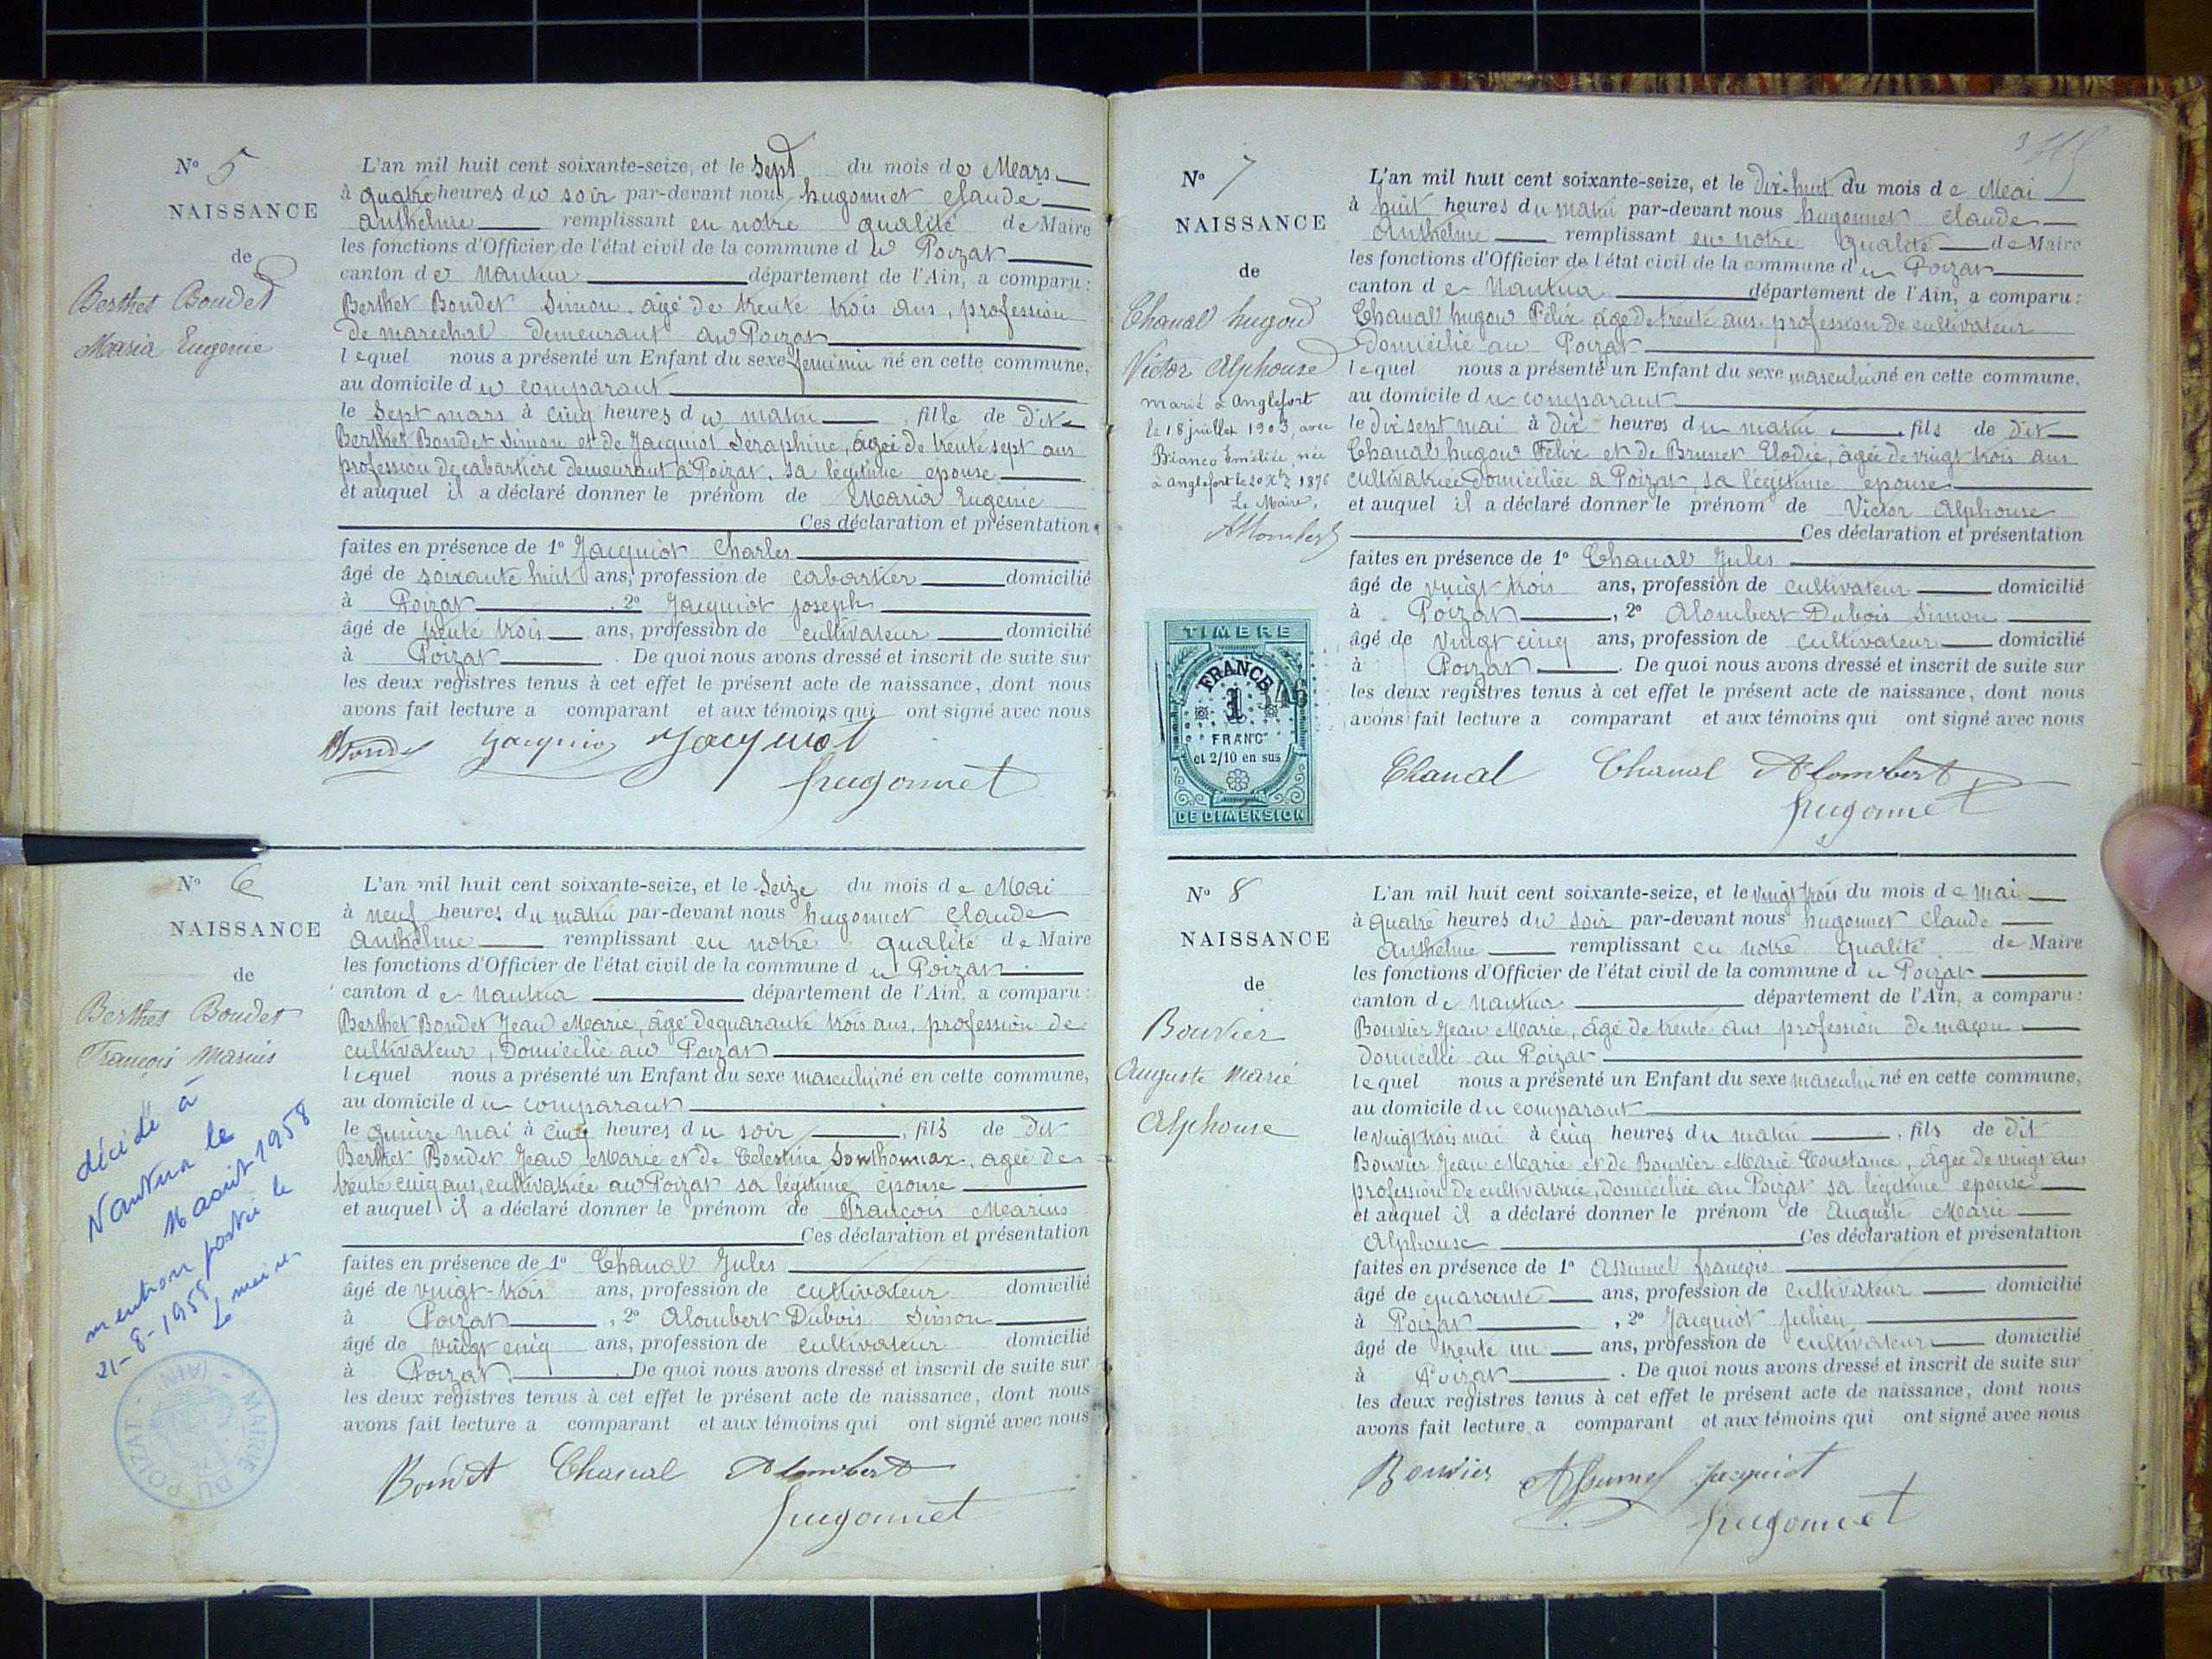 N° 5
NAISSANCE
de
Berthet Bondet
Maria Eugenie
L'an mil huit cent soixante-seize, et le Sept du mois de Mars
à quatre heures du soir par-devant nous hugonnet claude
anthelme remplissant en notre qualité de Maire
les fonctions d'Officier de l'état civil de la commune du Poizat
canton de Nantua département de l'Ain, a comparu :
Berthet Bondet Simon, âgé de trente trois ans, profession
de marechal demeurant au Poizat
lequel nous a présenté un Enfant du sexe feminin né en cette commune,
au domicile du comparant
le Sept mars à cinq heures du matin, fille de dit
Berthet Bondet Simon et de Jacquiot Seraphine, âgée de trente sept ans
profession de cabartière demeurant à Poizat, sa légitime épouse
et auquel il a déclaré donner le prénom de Maria Eugenie
Ces déclaration et présentation
faites en présence de 1° Jacquiot Charles
âgé de soixante huit ans, profession de cabartier domicilié
à Poizat, 2° Jacquiot joseph
âgé de trente trois ans, profession de cultivateur domicilié
à Poizat. De quoi nous avons dressé et inscrit de suite sur
les deux registres tenus à cet effet le présent acte de naissance, dont nous
avons fait lecture a comparant et aux témoins qui ont signé avec nous
Jacquiot Jacquiot
hugonnet
N° 6
NAISSANCE
de
Berthet Bondet
François Marius
décédé à
Nantua le
16 août 1958
mention portée le
21-8-1958
Le maire
MAIRIE DU POIZAT (AIN)
L'an mil huit cent soixante-seize, et le Seize du mois de Mai
à neuf heures du matin par-devant nous hugonnet claude
anthelme remplissant en notre qualité de Maire
les fonctions d'Officier de l'état civil de la commune du Poizat
canton de Nantua département de l'Ain, a comparu :
Berthet Bondet Jean Marie, âgé de quarante trois ans, profession de
cultivateur, Domicilié au Poizat
lequel nous a présenté un Enfant du sexe masculin né en cette commune,
au domicile du comparant
le quinze mai à cinq heures du soir, fils de dit
Berthet Bondet Jean Marie et de Celestine Sonthonnax, agée de
trente cinq ans, cultivatrice au Poizat sa légitime épouse
et auquel il a déclaré donner le prénom de François Marius
Ces déclaration et présentation
faites en présence de 1° Chanal Jules
âgé de vingt-trois ans, profession de cultivateur domicilié
à Poizat, 2° Alombert Dubois Simon
âgé de vingt cinq ans, profession de cultivateur domicilié
à Poizat. De quoi nous avons dressé et inscrit de suite sur
les deux registres tenus à cet effet le présent acte de naissance, dont nous
avons fait lecture a comparant et aux témoins qui ont signé avec nous
Bondet Chanal Alombert
hugonnet
N° 7
NAISSANCE
de
Chanal hugon
Victor Alphonse
marié à Anglefort
le 18 juillet 1903, avec
Bianco Emélie, née
à Anglefort le 20 Xbre 1876
Le Maire,
Alombert
TIMBRE
FRANCE
1
FRANC
et 2/10 en sus
DE DIMENSION
L'an mil huit cent soixante-seize, et le Dix-huit du mois de Mai
à huit heures du matin par-devant nous hugonnet claude
Anthelme remplissant en notre qualité de Maire
les fonctions d'Officier de l'état civil de la commune du Poizat
canton de Nantua département de l'Ain, a comparu :
Chanal hugon Félix âgé de trente ans, profession de cultivateur
domicilié au Poizat
lequel nous a présenté un Enfant du sexe masculin né en cette commune,
au domicile du comparant
le dix sept mai à dix heures du matin, fils de dit
Chanal hugon Félix et de Brunet Elodie, âgée de vingt trois ans
cultivatrice domiciliée à Poizat, sa légitime epouse
et auquel il a déclaré donner le prénom de Victor Alphonse
Ces déclaration et présentation
faites en présence de 1° Chanal Jules
âgé de vingt trois ans, profession de cultivateur domicilié
à Poizat, 2° Alombert Dubois Simon
âgé de vingt cinq ans, profession de cultivateur domicilié
à Poizat. De quoi nous avons dressé et inscrit de suite sur
les deux registres tenus à cet effet le présent acte de naissance, dont nous
avons fait lecture a comparant et aux témoins qui ont signé avec nous
Chanal Chanal Alombert
hugonnet
N° 8
NAISSANCE
de
Bouvier
Auguste Marie
Alphonse
L'an mil huit cent soixante-seize, et le vingt trois du mois de mai
à quatre heures du soir par-devant nous hugonnet claude
anthelme remplissant en notre qualité de Maire
les fonctions d'Officier de l'état civil de la commune du Poizat
canton de Nantua département de l'Ain, a comparu :
Bouvier Jean Marie, âgé de trente ans profession de maçon
domicilié au Poizat
lequel nous a présenté un Enfant du sexe masculin né en cette commune,
au domicile du comparant
le vingt trois mai à cinq heures du matin, fils de dit
Bouvier Jean Marie et de Bouvier Marie Constance, âgée de vingt ans
profession de cultivatrice, domiciliée au Poizat sa légitime épouse
et auquel il a déclaré donner le prénom de Auguste Marie
Alphonse Ces déclaration et présentation
faites en présence de 1° Assumel françois
âgé de quarante ans, profession de cultivateur domicilié
à Poizat, 2° Jacquiot julien
âgé de trente un ans, profession de cultivateur domicilié
à Poizat. De quoi nous avons dressé et inscrit de suite sur
les deux registres tenus à cet effet le présent acte de naissance, dont nous
avons fait lecture a comparant et aux témoins qui ont signé avec nous
Bouvier Assumel jacquiot
hugonnet